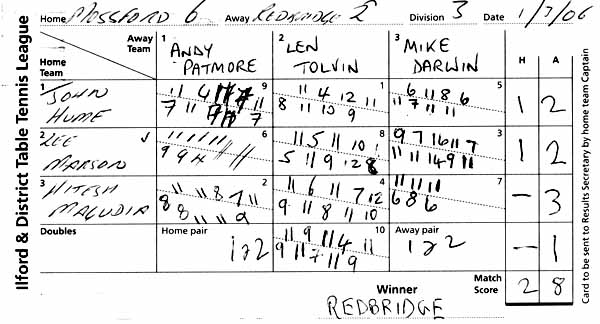 Ilford & District Table Tennis League
Home MOSSFORD 6 Away REDBRIDGE 2 Division 3 Date 1/3/06
Away Team
Home Team
1 ANDY PATMORE
2 LEN TOLVIN
3 MIKE DARWIN
H A
1 JOHN HUME
9
11 4
7 11
1
11 4 12 11
8 11 10 9
5
6 11 8 6
11 7 11 11
1 2
2 LEE MARSON
6
11 11 11
9 9 4
8
11 5 11 10
5 11 9 12 8
3
9 7 16 11 7
11 11 14 9 11
1 2
3 HITESH MAGUDIA
2
11 11 8 7 11
8 8 11 11 9
4
11 6 11 7 12
9 11 8 11 10
7
11 11 11
6 8 6
- 3
Doubles
Home pair
1+2
10
11 9 11 4 11
9 11 7 11 9
Away pair
1+2
- 1
Winner
REDBRIDGE
Match Score
2 8
Card to be sent to Results Secretary by home team Captain